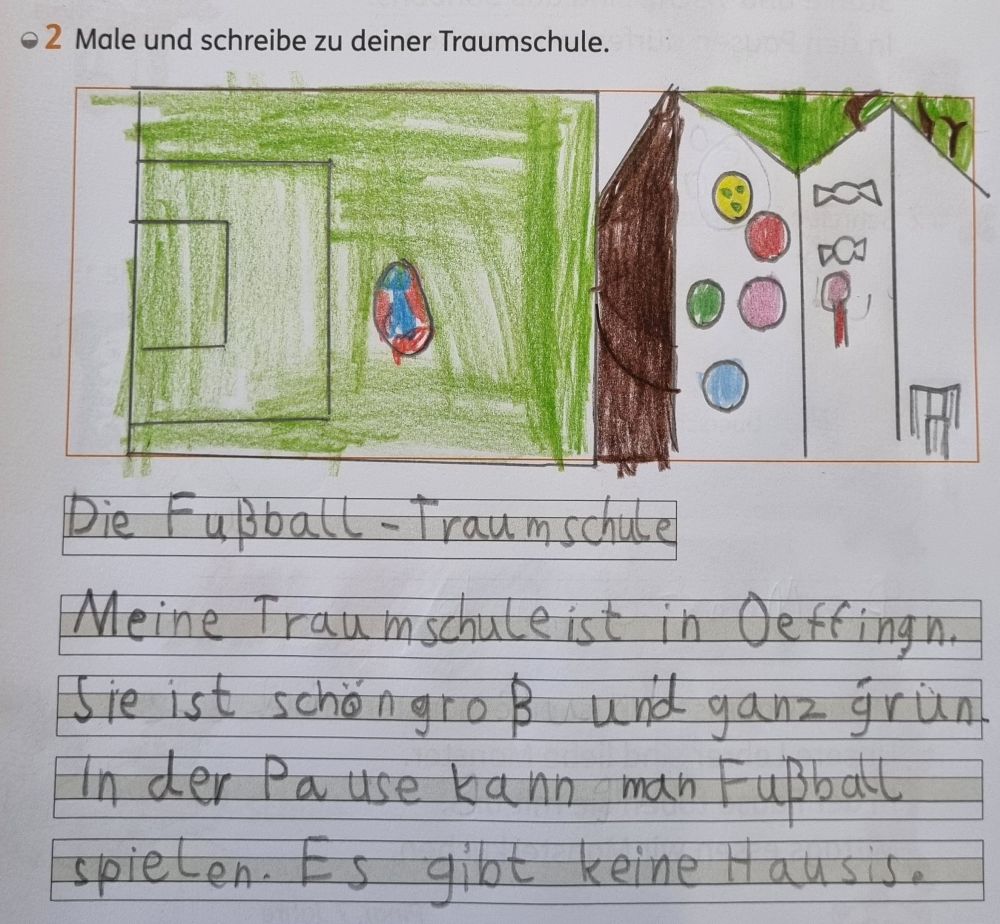 2 Male und schreibe zu deiner Traumschule.
Die Fußball-Traumschule
Meine Traumschule ist in Oeffingn.
Sie ist schön groß und ganz grün.
In der Pause kann man Fußball
spielen. Es gibt keine Hausis.